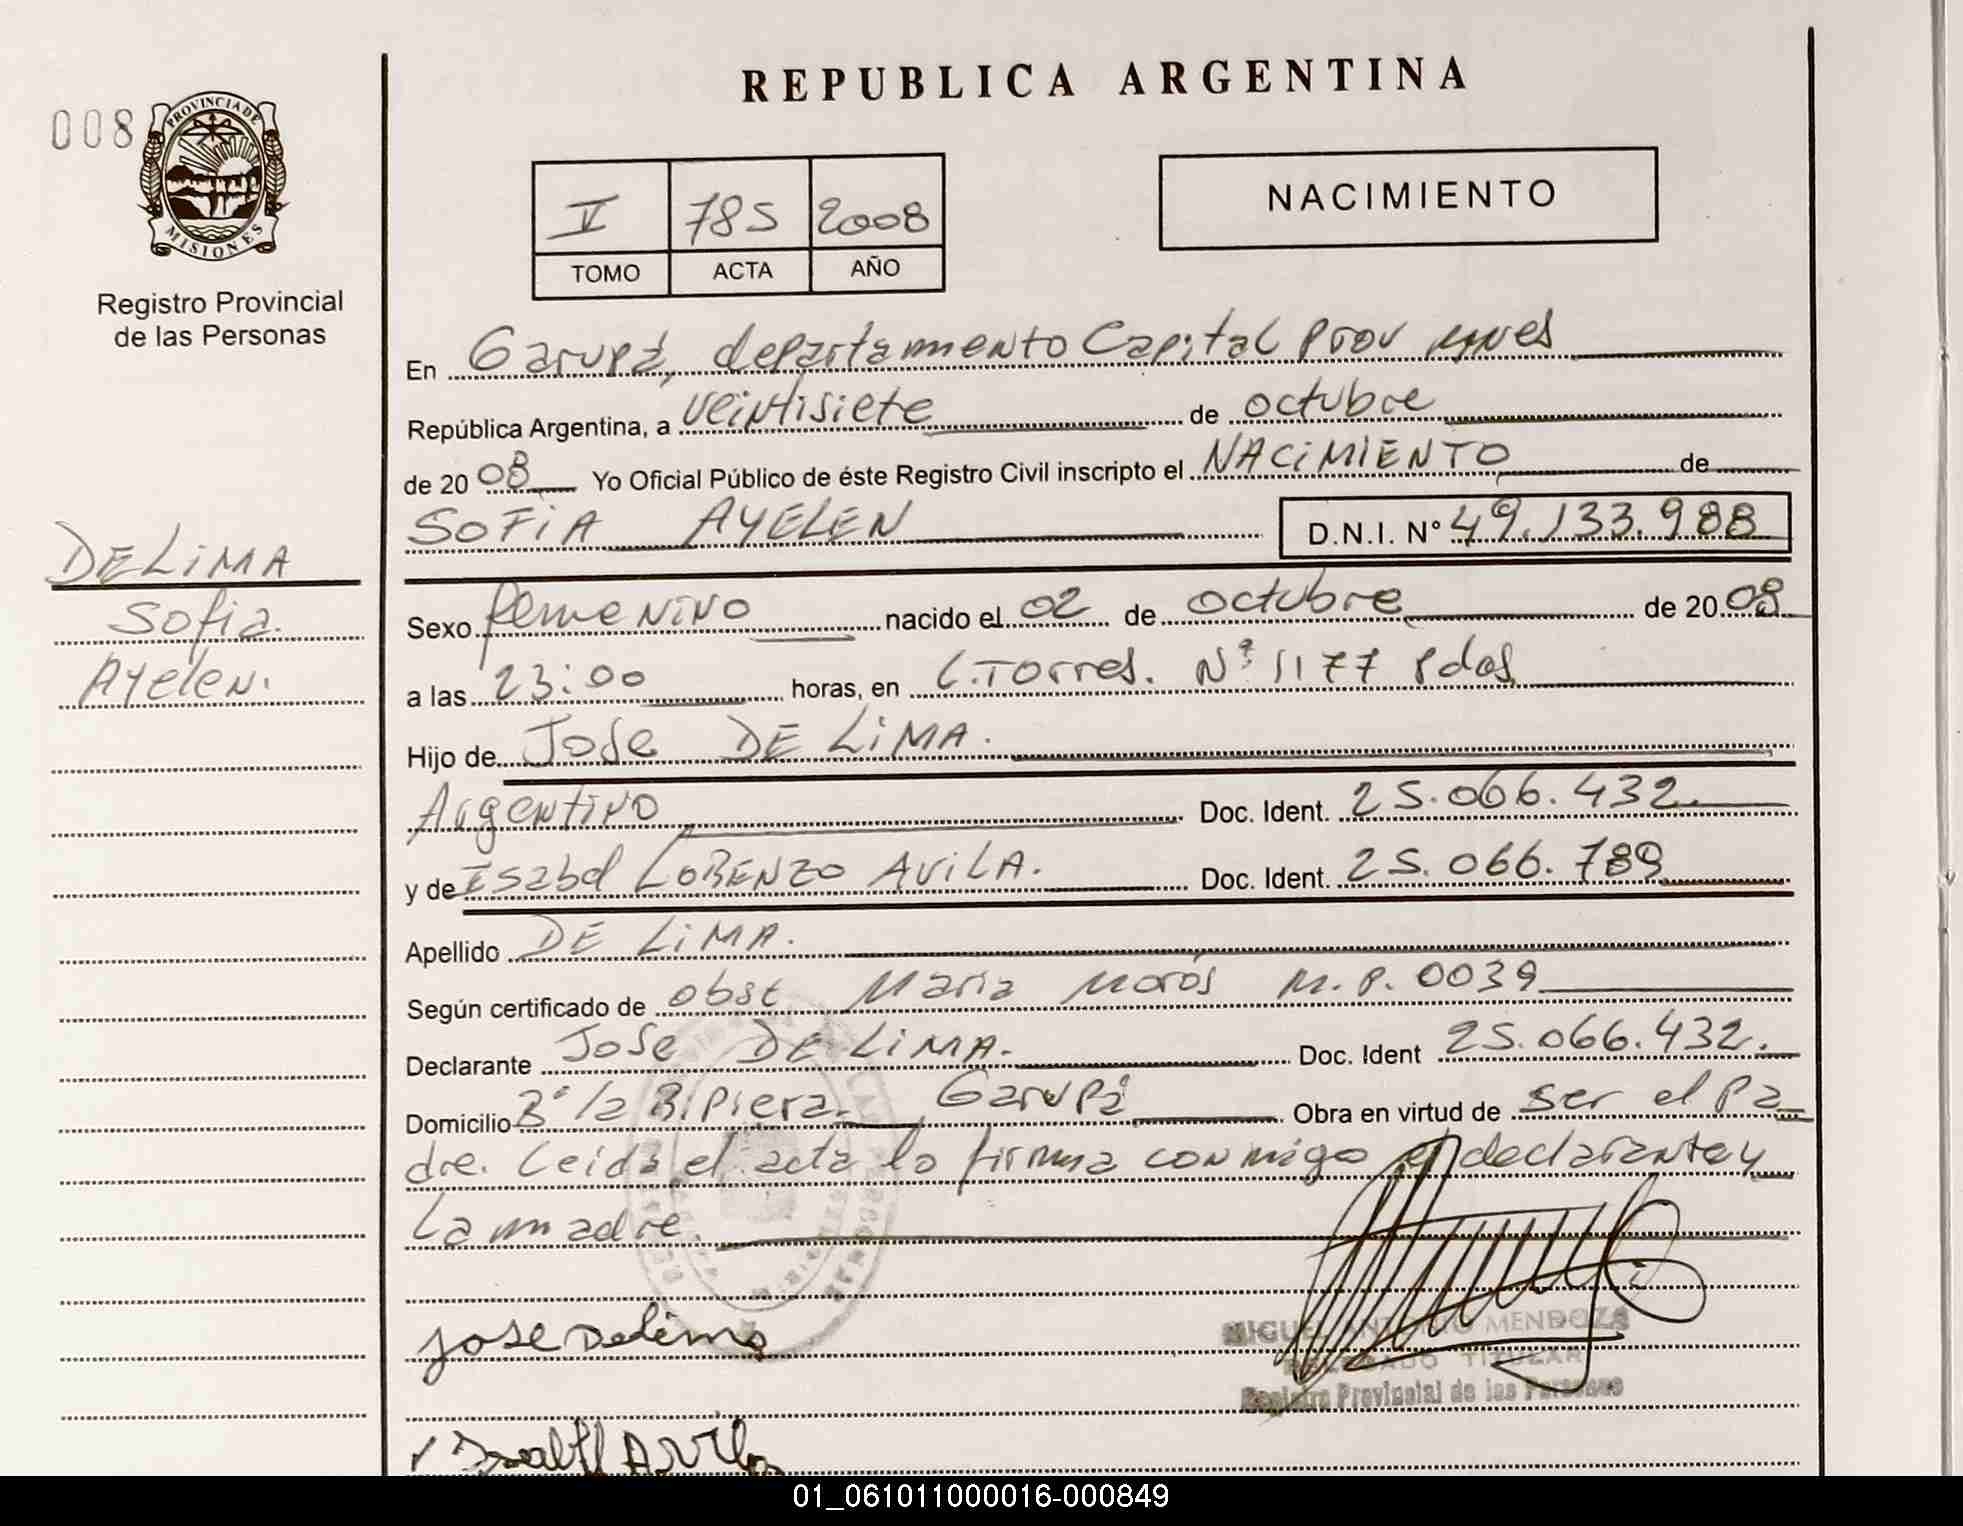 REPUBLICA ARGENTINA
008
PROVINCIA DE
MISIONES
Registro Provincial
de las Personas
V 785 2008
TOMO ACTA AÑO
NACIMIENTO
En Garupá, departamento Capital Prov
República Argentina, a veintisiete de octubre
de 20 08 Yo Oficial Público de éste Registro Civil inscripto el NACIMIENTO de
SOFIA AYELEN D.N.I. Nº 49.133.988
DE LIMA
Sofia
Ayelen.
Sexo femenino nacido el 02 de octubre de 20 08
a las 23:00 horas, en L. Torres. Nº 1177 Pdas
Hijo de Jose DE LIMA.
Argentino Doc. Ident. 25.066.432
y de Isabel LORENZO AVILA. Doc. Ident. 25.066.789
Apellido DE LIMA.
Según certificado de obst Maria Morós M.P. 0039
Declarante Jose DE LIMA. Doc. Ident 25.066.432.
Domicilio Bº la Ripiera, Garupá Obra en virtud de ser el pa
dre. Leida el acta lo firma conmigo el declarante y
la madre.
jose Delima
MIGUEL ANTONIO MENDOZA
DELEGADO TITULAR
Registro Provincial de las Personas
Isabel Avila
01_061011000016-000849